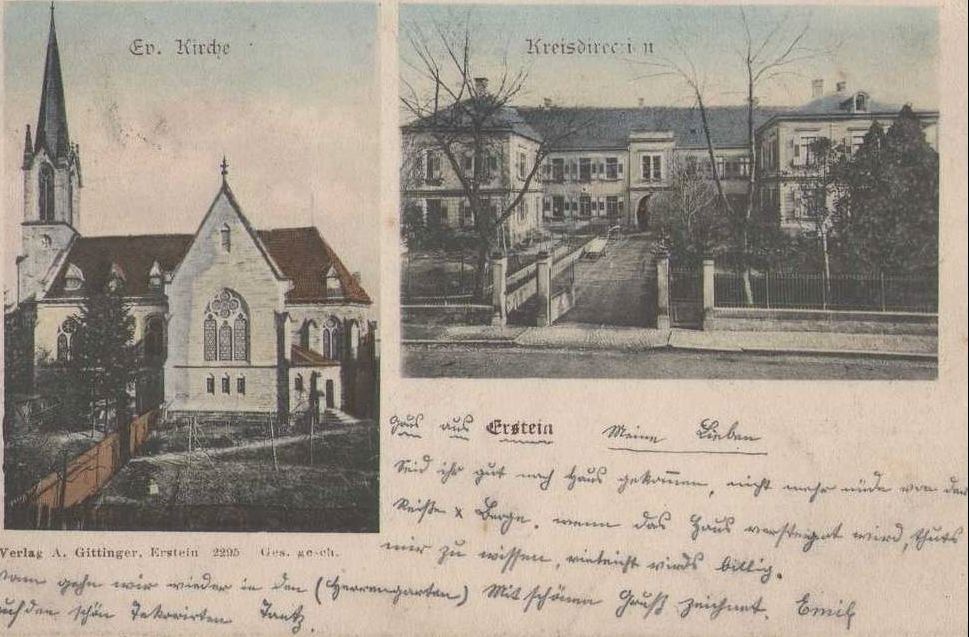 Ev. Kirche
Kreisdirection
Gruß aus Erstein Meine Lieben
Seid ihr gut nach Haus gekommen, nicht mehr müde von der
Berge. wenn das Haus versteigert wird, thuts
mir zu wissen, vieleicht wirds billig.
Verlag A. Gittinger, Erstein 2295 Ges. gesch.
dann gehn wir wieder in den (Herrengarten) Mit schönem Gruß zeichnet. Emil
auf den schön Dekorirten